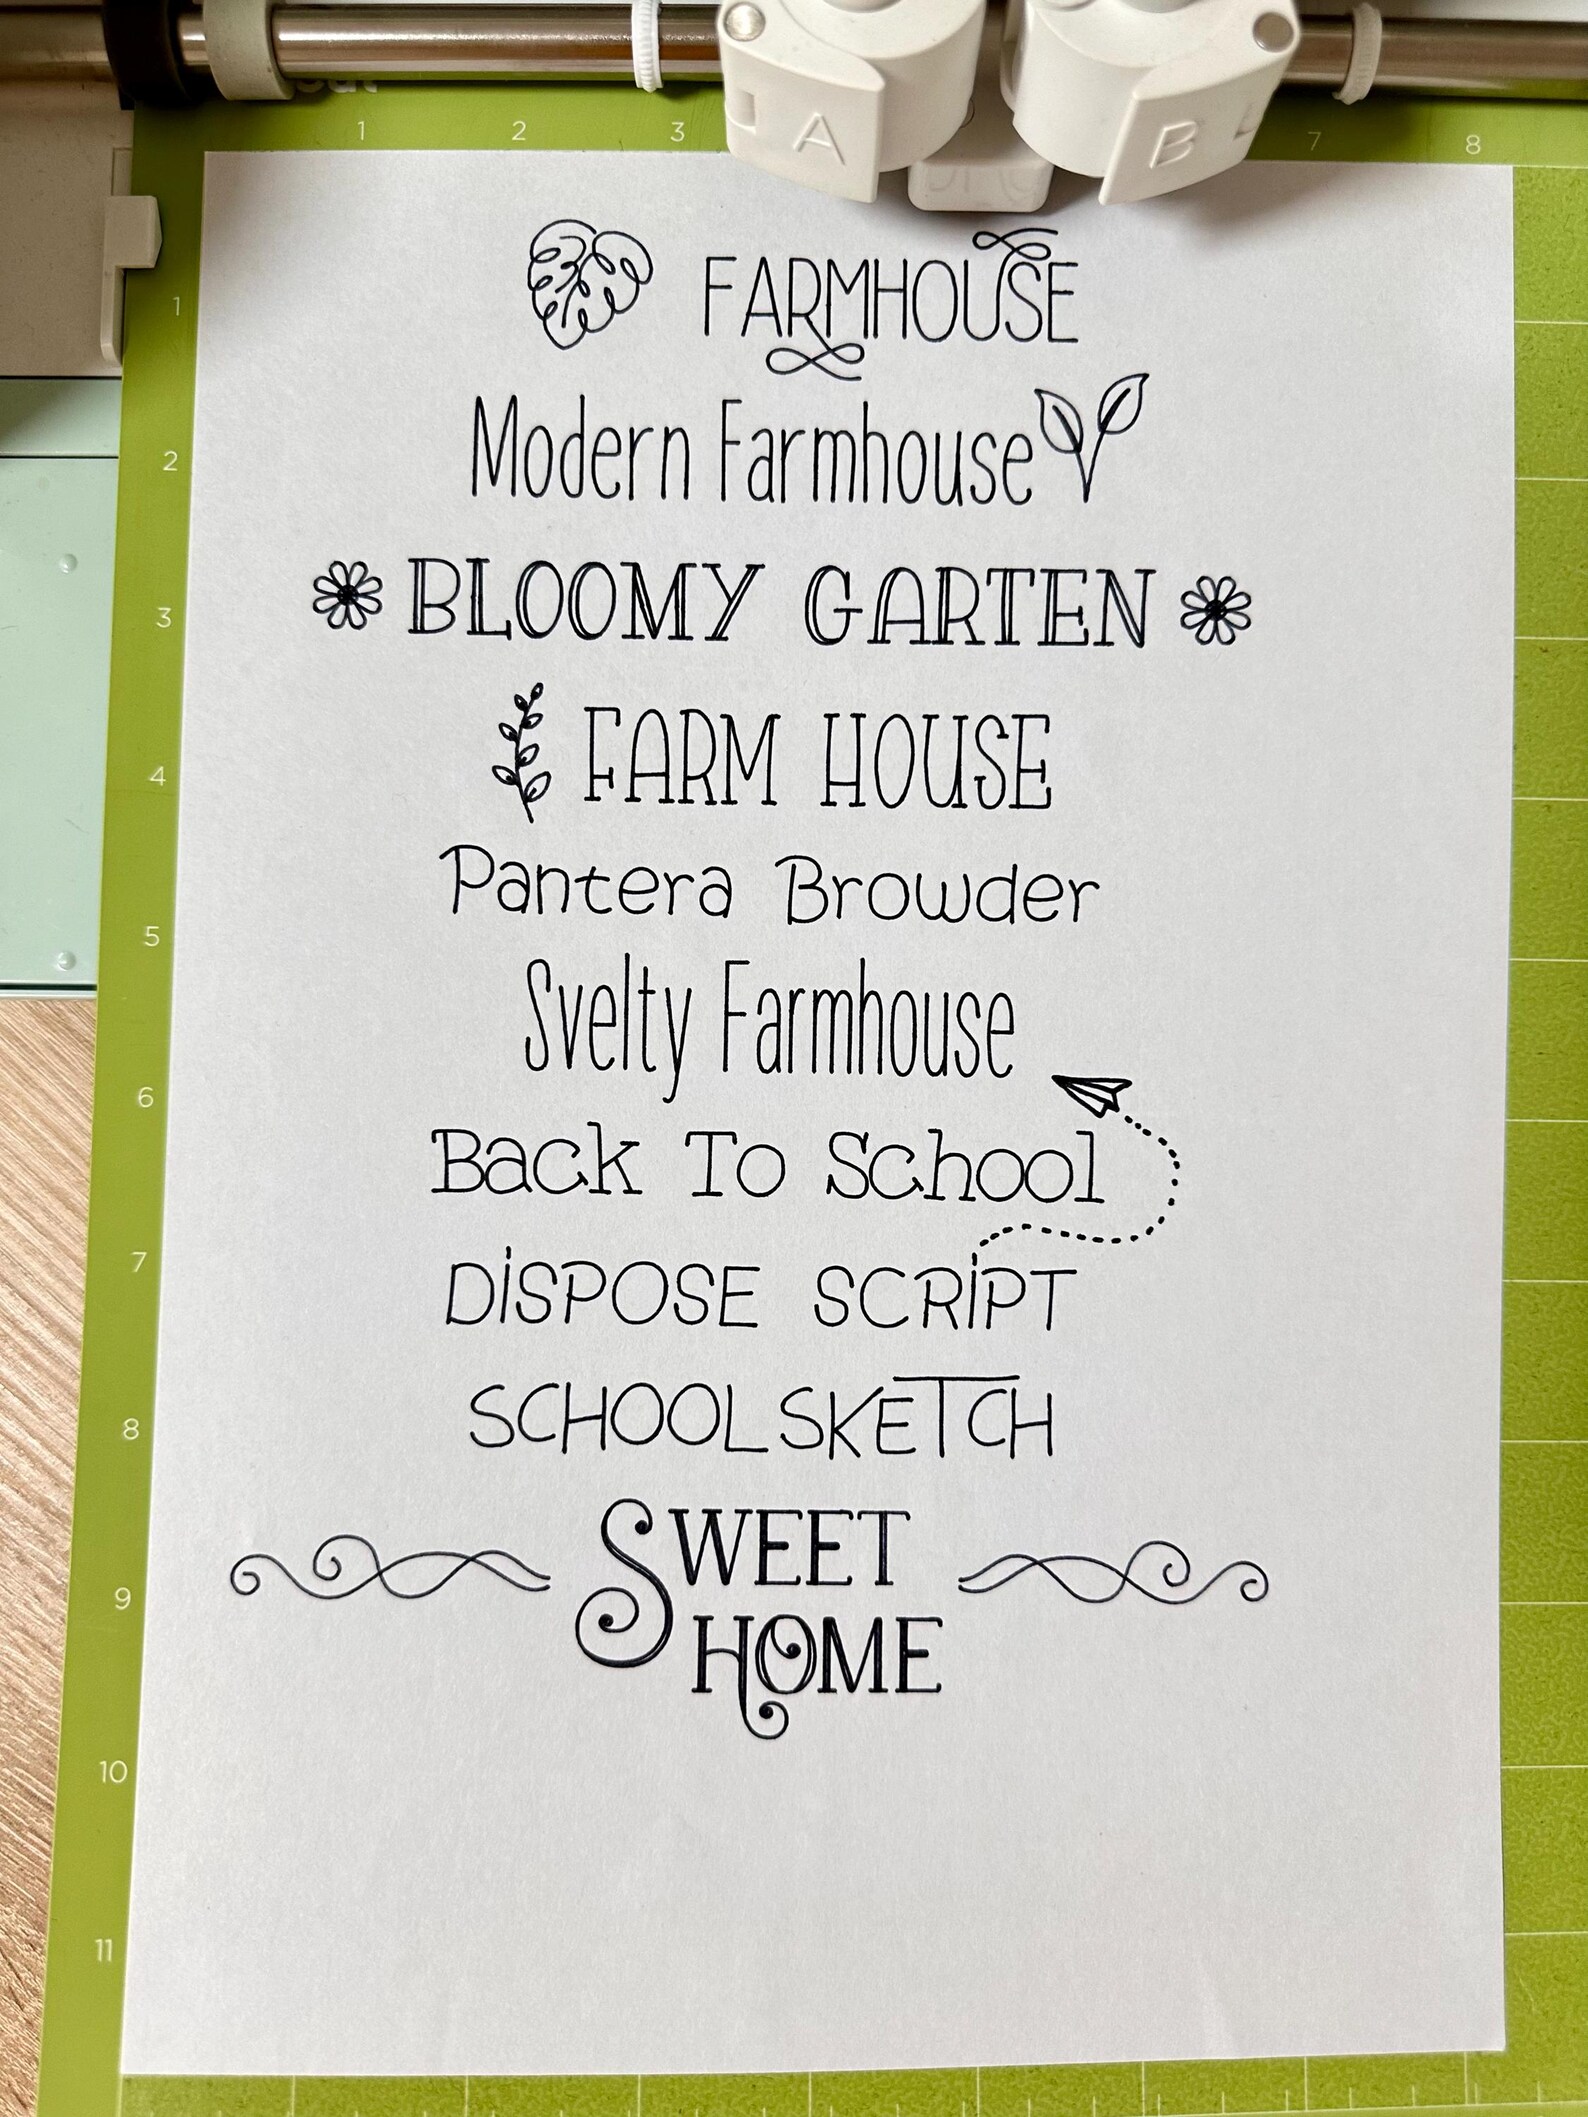 1 2 3 7 8
A B
FARMHOUSE
1
Modern Farmhouse
2
BLOOMY GARTEN
3
FARM HOUSE
4
Pantera Browder
5
Svelty Farmhouse
6
Back To School
7
DiSPOSE SCRiPT
SCHOOLSKETCH
8
SWEET
9
HOME
10
11